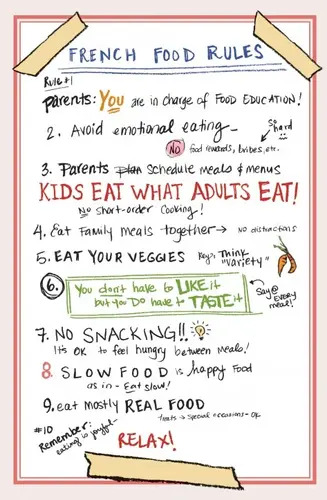 FRENCH FOOD RULES
Rule #1
parents: YOU are in charge of FOOD EDUCATION!
2. Avoid emotional eating-
So hard
NO food rewards, bribes, etc.
3. Parents plan schedule meals & menus
KIDS EAT WHAT ADULTS EAT!
NO short-order cooking!
4. Eat Family meals together → no distractions
5. EAT YOUR VEGGIES Key: Think "Variety"
6. You don't have to LIKE it
but you DO have to TASTE it
Say @ EVERY meal!
7. NO SNACKING!!
It's OK to feel hungry between meals!
8. SLOW FOOD is happy Food
as in - Eat slow!
9. eat mostly REAL FOOD
treats → special occasions - OK
#10
Remember:
eating is joyful-
RELAX!